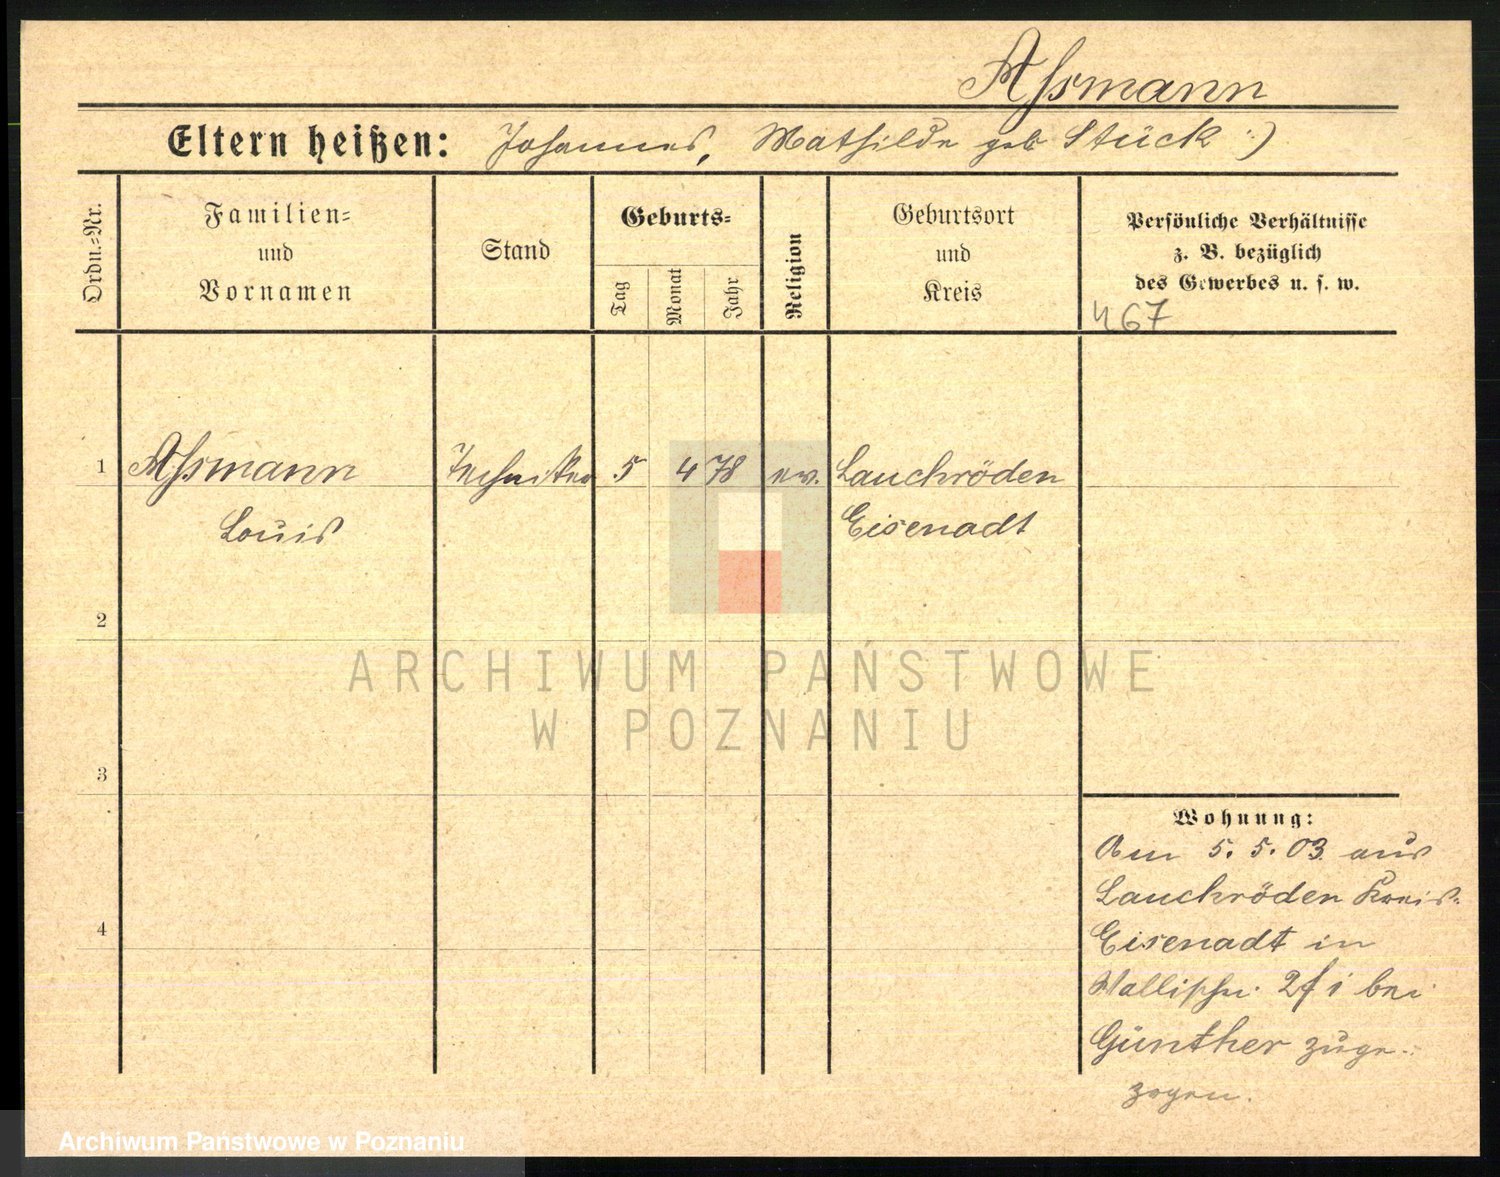 Aſsmann
Eltern heißen: Johannes, Mathilde geb Stück :)
Ordn.=Nr.
Familien= und Vornamen
Stand
Geburts=
Tag
Monat
Jahr
Religion
Geburtsort und Kreis
Persönliche Verhältnisse
z. B. bezüglich
des Gewerbes u. s. w.
467
1 Aſsmann Techniker 5 4 78 ev. Lauchröden
Louis Eisenadt
2
ARCHIWUM PAŃSTWOWE
W POZNANIU
3
4
Wohnung:
Am 5. 5. 03 aus
Lauchröden Kreis
Eisenadt in
Wallischei bei
Günther zuge-
zogen.
Archiwum Państwowe w Poznaniu